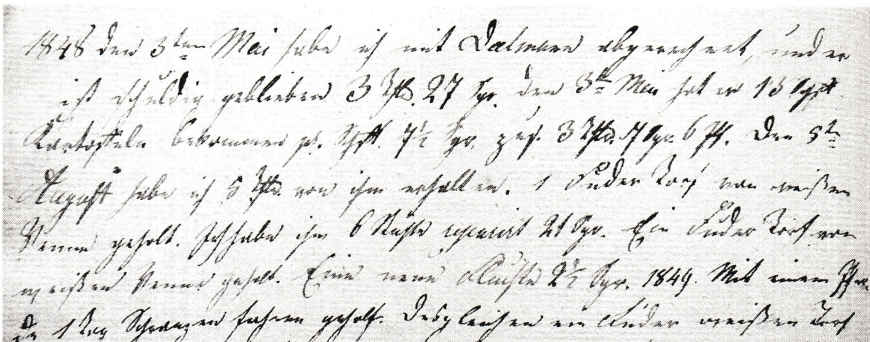 1848 den 3ten Mai habe ich mit Dalmann abgerechnet, und er
ist schuldig geblieben 3 Thlr. 27 Sgr. den 3te Mai hat er 13 Schfft.
Kartoffeln bekommen p. Schfft. 7½ Sgr. zus. 3 Thlr. 7 Sgr. 6 Pf. Den 5te
August habe ich 5 Thlr. von ihm erhalten. 1 Fuder Torf von weißen
Venne geholt. Ich habe ihm 6 Stühle 21 Sgr. Ein Fuder Torf von
weißen Venne geholt. Eine neue 2½ Sgr. 1849. Mit einem Pfer-
de 1 Tag Schanzen fahren geholf. Desgleichen ein Fuder weißen Torf